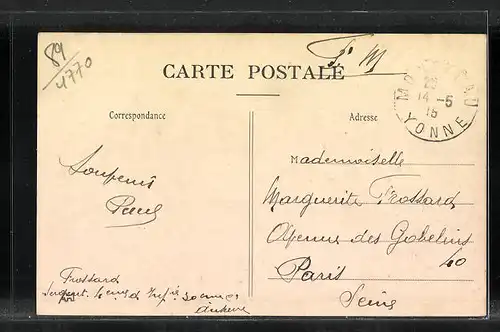 89
4770
CARTE POSTALE
F. M
Correspondance
Adresse
14 -5
15
YONNE
Souvenir
Paul
Mademoiselle
Marguerite Frossard
Avenue des Gobelins
40
Paris
Seine
Frossard
Sergent